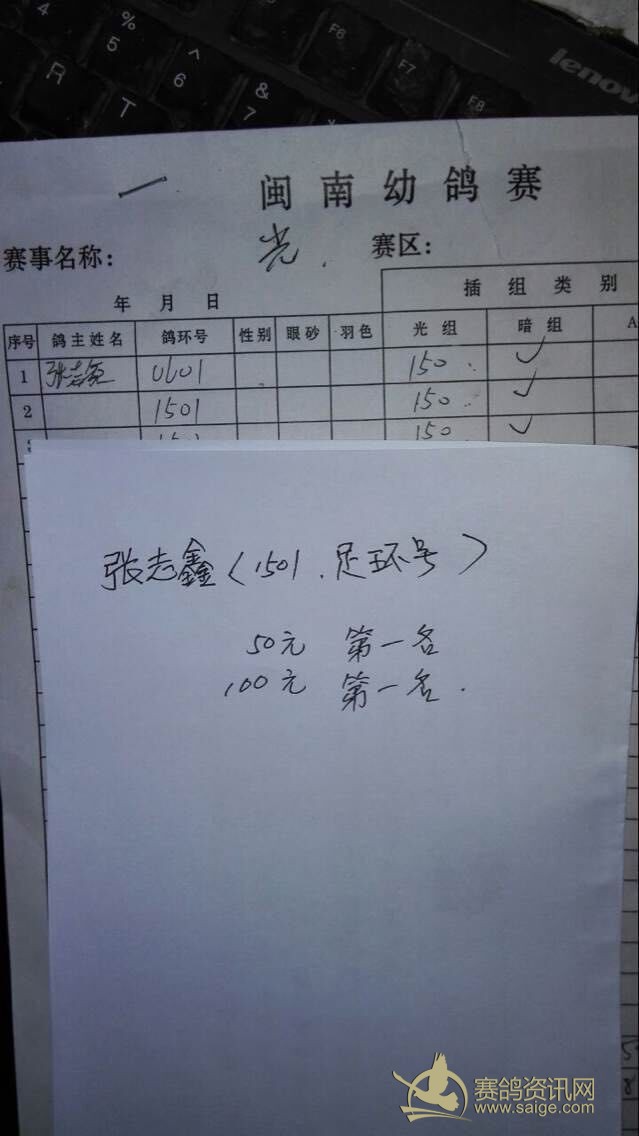 % 5
^ 6
& 7
R
T
F6
F7
F8
lenovo
一 闽南幼鸽赛
赛事名称： 光. 赛区：
年 月 日 插组类别
序号 鸽主姓名 鸽环号 性别 眼砂 羽色 光组 暗组 A
1 张志鑫 0601 150 ✓
2 1501 150 ✓
150 ✓
张志鑫（1501.足环号）
50元 第一名
100元 第一名.
赛鸽资讯网
www.saige.com